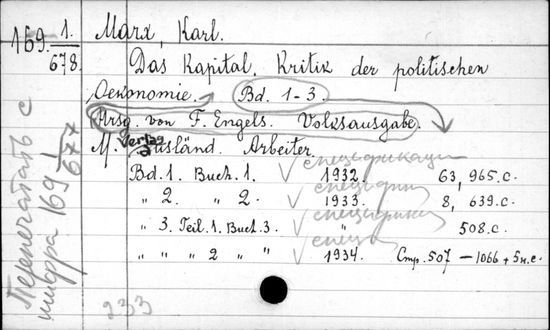 169. 1./678.
Marx, Karl.
Das Kapital. Kritik der politischen
Oekonomie. Bd. 1-3.
Hrsg. von F. Engels. Volksausgabe.
M. Verlag Ausländ. Arbeiter.
Bd. 1. Buch. 1. 1932. 63, 965.c.
„ 2. „ 2. „ 1933. 8, 639.c.
„ 3. Teil. 1. Buch. 3. „ 508.c.
„ „ „ 2 „ „ 1934. Стр. 507 - 1066 + 5 н.с.
Перепечатать с
шифра 169 1/677
233